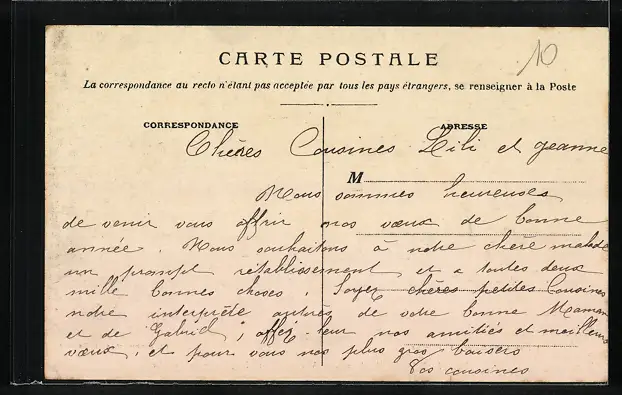 10
CARTE POSTALE
La correspondance au recto n'étant pas acceptée par tous les pays étrangers, se renseigner à la Poste
CORRESPONDANCE ADRESSE
Chères Cousines Lili et Jeanne
M
Nous sommes heureuses
de venir vous offrir nos vœux de bonne
année. Nous souhaitons à notre chère malade
un prompt rétablissement et a toutes deux
mille bonnes choses. Soyez chères petites Cousines
notre interprète auprès de votre bonne Maman
et de Gabriel, offrez leur nos amitiés et meilleurs
vœux, et pour vous nos plus gros baisers
Vos cousines